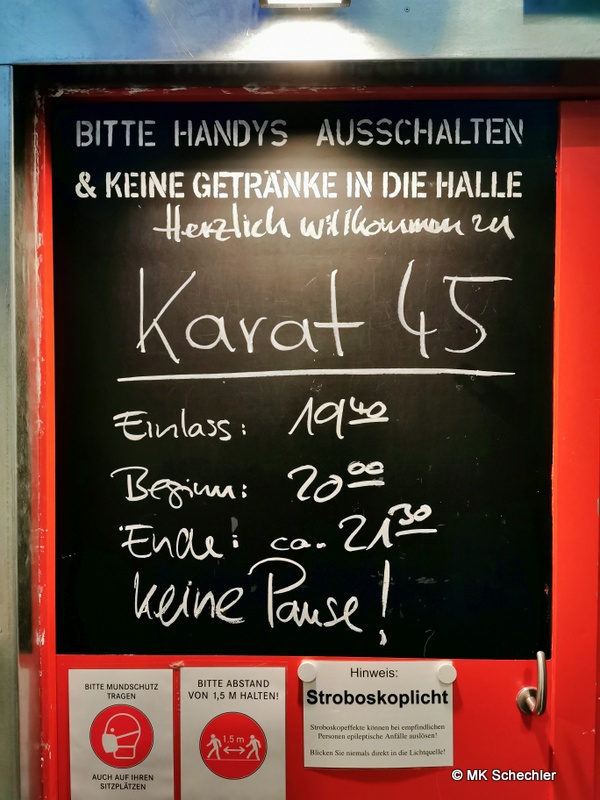 BITTE HANDYS AUSSCHALTEN
& KEINE GETRÄNKE IN DIE HALLE
Herzlich willkommen zu
Karat 45
Einlass: 19⁴⁰
Beginn: 20⁰⁰
Ende: ca. 21³⁰
keine Pause!
BITTE MUNDSCHUTZ
TRAGEN
AUCH AUF IHREN
SITZPLÄTZEN
BITTE ABSTAND
VON 1,5 M HALTEN!
1,5 m
Hinweis:
Stroboskoplicht
Stroboskopeffekte können bei empfindlichen
Personen epileptische Anfälle auslösen!
Blicken Sie niemals direkt in die Lichtquelle!
© MK Schechler